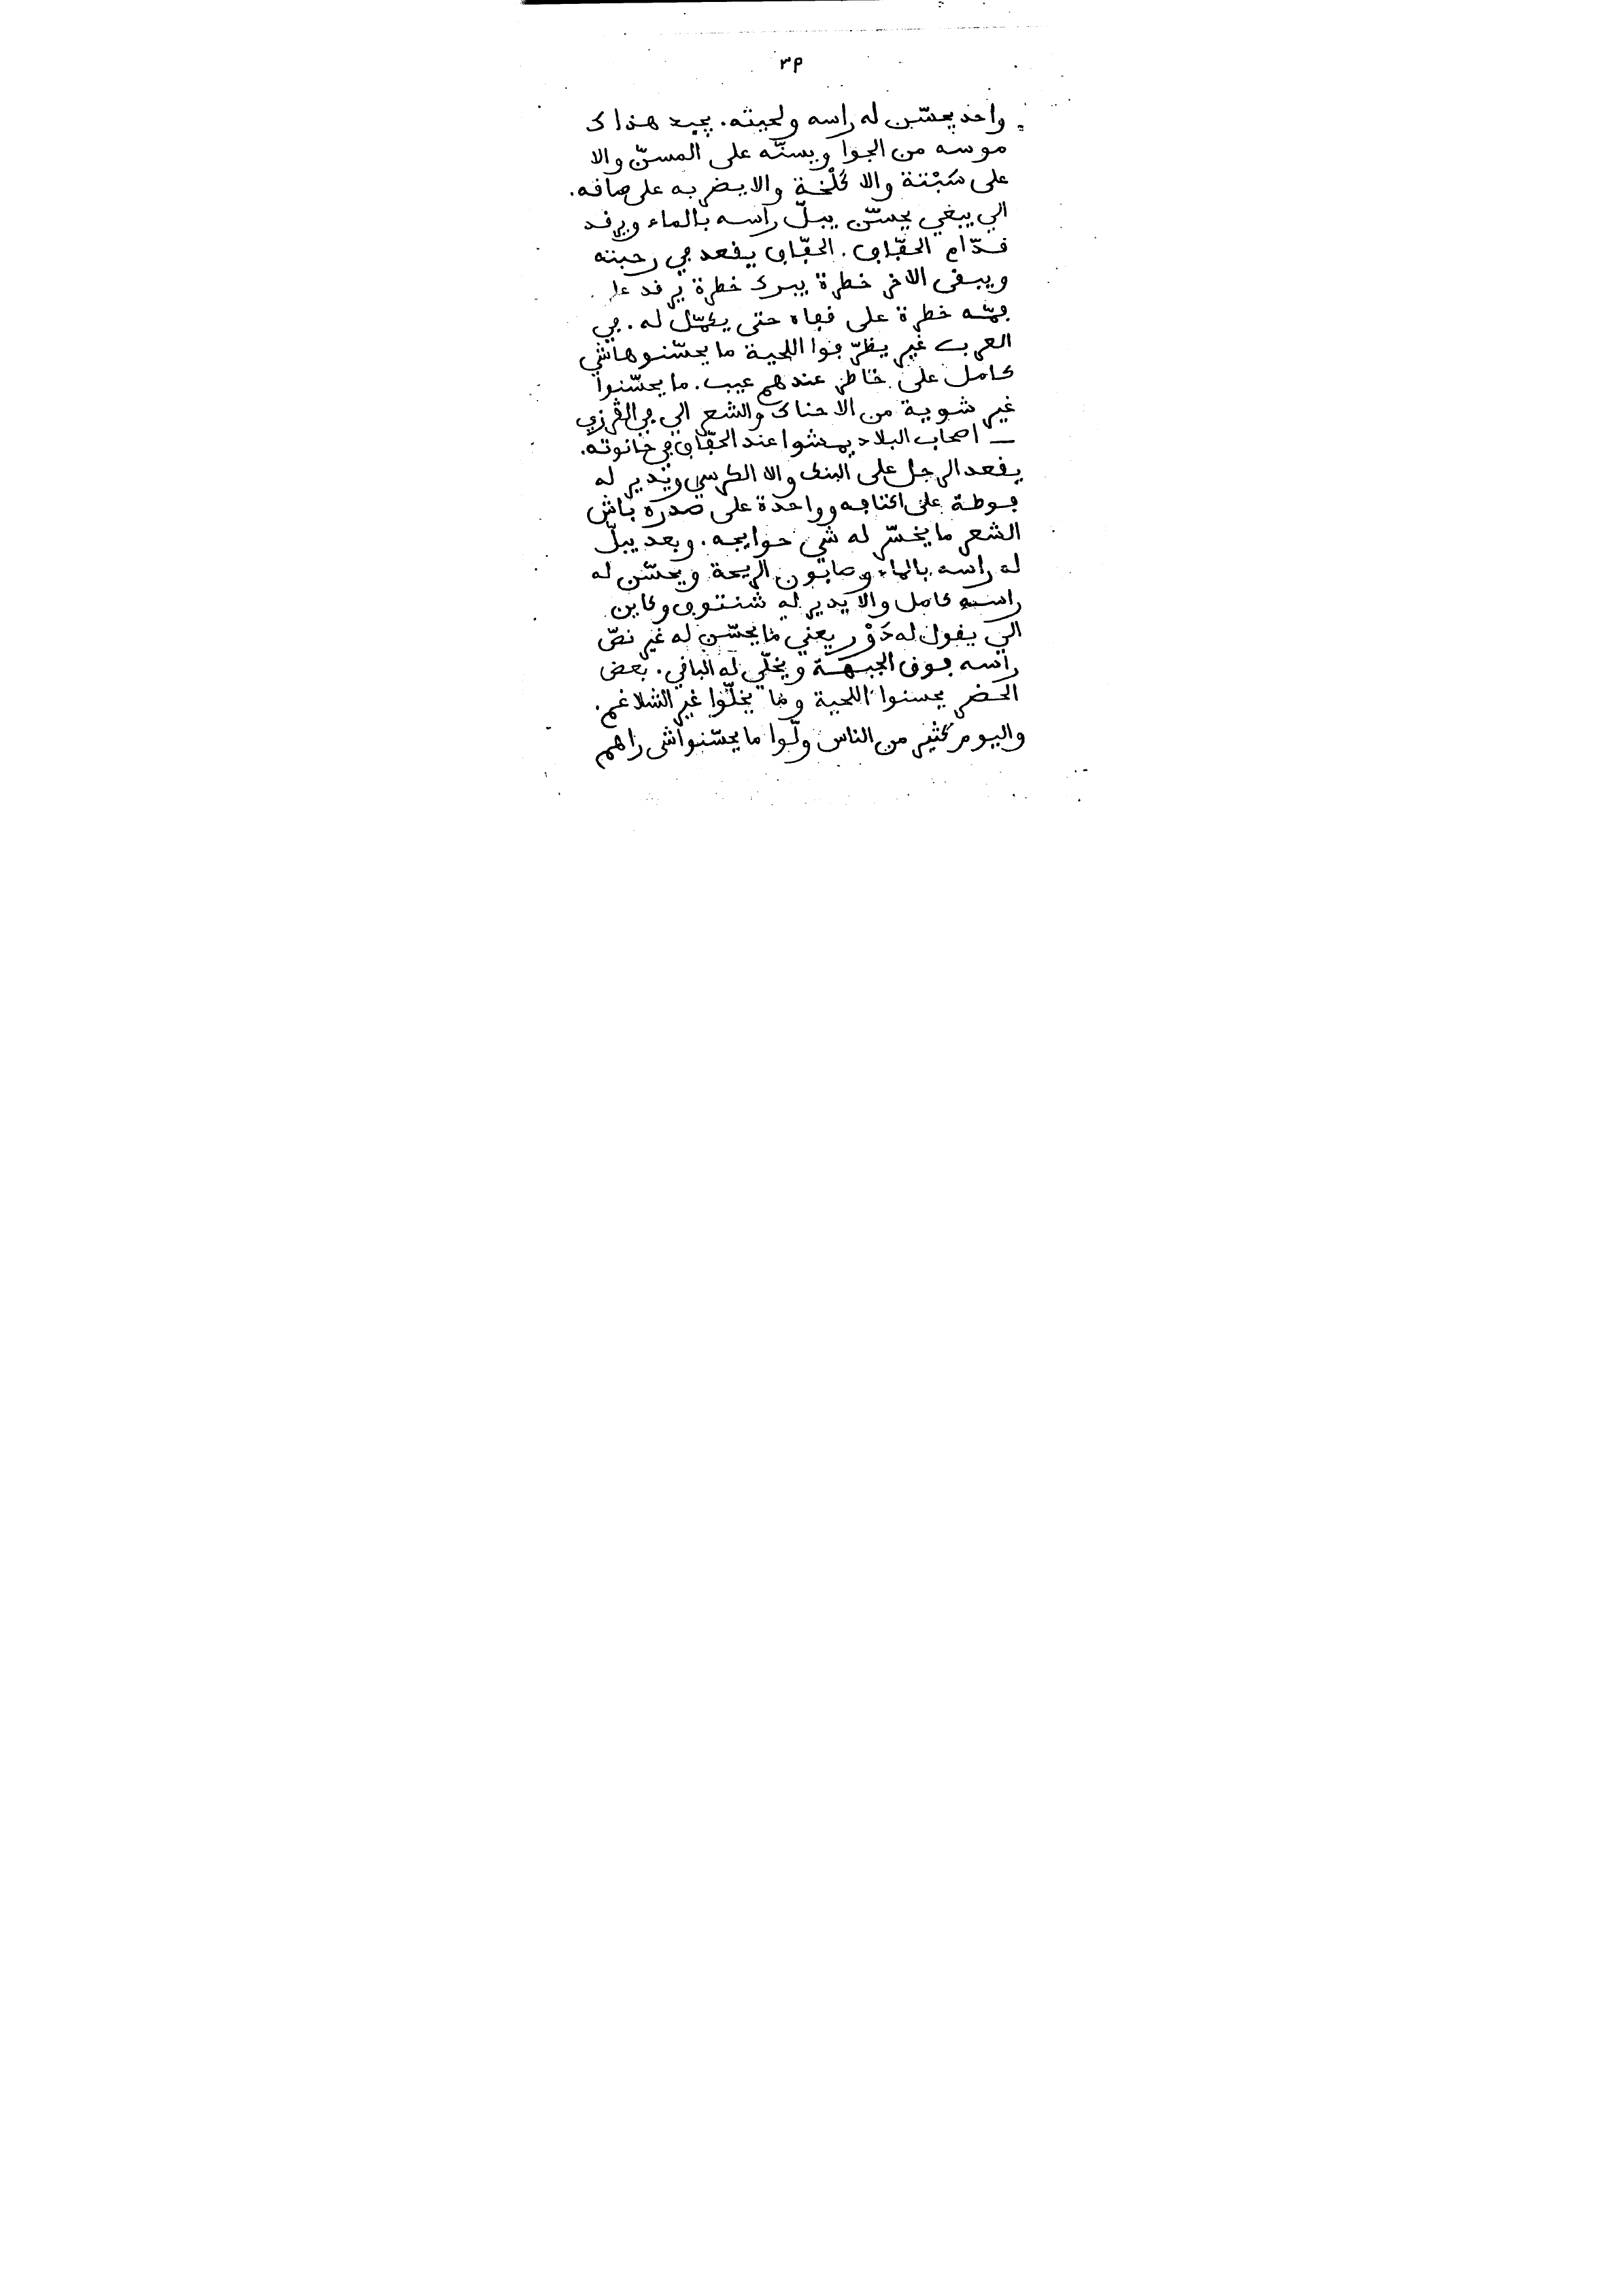 ٣٩
واحد يحسّن له راسه ولحيته. يجبد هذاك
موسه من الجوا ويسنّه على المسنّ والا
على سَبْتة والا كَلْخة والا يضربه على صافه.
الي يبغي يحسّن يبلّ راسه بالماء ويرقد
قدّام الحفّاف. الحفّاف يقعد في رحبته
ويبقى الاخر خطرة يبرك خطرة يرقد على
فمّه خطرة على قفاه حتى يكمّل له. في
العرب غير يظرّفوا اللحية ما يحسّنوهاشي
كامل على خاطر عندهم عيب. ما يحسّنوا
غير شوية من الاحناك والشعر الي في الڨرزي
ـ اصحاب البلاد يمشوا عند الحفّاف في حانوته.
يقعد الرجل على البنك والا الكرسي ويدير له
فوطة على اكتافه وواحدة على صدره باش
الشعر ما يخسّر له شي حوايجه. وبعد يبلّ
له راسه بالماء وصابون الريحة ويحسّن له
راسه كامل والا يدير له شنتوف وكاين
الي يقول له دَوْر يعني ما يحسّن له غير نصّ
راسه فوق الجبهة ويخلّي له الباقي. بعض
الحضر يحسنوا اللحية وما يخلّوا غير الشلاغم.
واليوم كثير من الناس ولّوا ما يحسّنواشي راهم